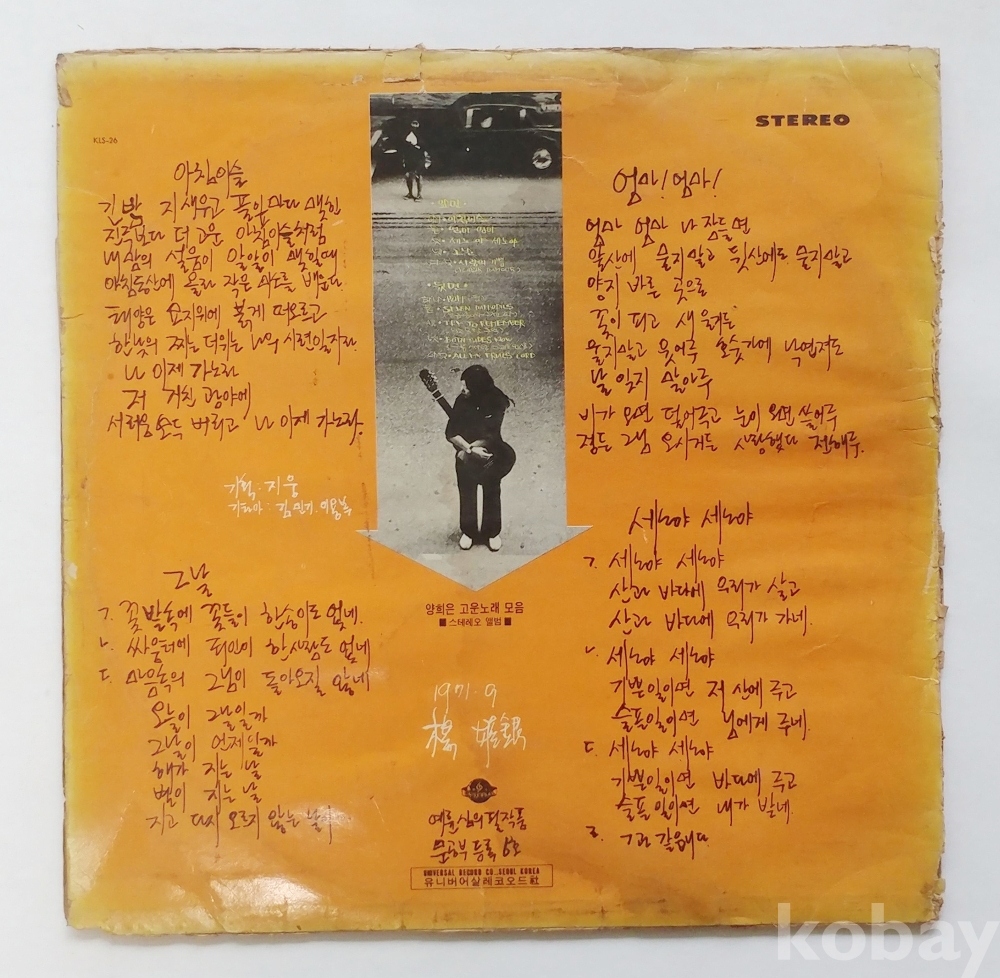 KLS-36
STEREO
아침이슬
긴밤 지새우고 풀잎마다 맺힌
진주보다 더 고운 아침이슬처럼
내맘의 설움이 알알이 맺힐때
아침동산에 올라 작은 미소를 배운다
태양은 묘지위에 붉게 떠오르고
한낮의 찌는 더위는 나의 시련일지라
나 이제 가노라
저 거친 광야에
서러움 모두 버리고 나 이제 가노라.
기획·지웅
기타아· 김민기·이용복
그날
ㄱ. 꽃밭속에 꽃들이 한송이도 없네.
ㄴ. 싸움터에 죄인이 한사람도 없네
ㄷ. 마음속의 그님이 돌아오질 않네
오늘이 그날일까
그날이 언제일까
해가 지는 날
별이 지는 날
지고 다시 오르지 않는 날이
·앞면·
·뒷면·
SEVEN DAFFODILS
TRY TO REMEMBER
BOTH SIDES NOW
ALL MY TRIALS LORD
양희은 고운노래 모음
■ 스테레오 앨범 ■
1971.9
楊 姬銀
예륜심의필작품
문공부 등록 6호
UNIVERSAL RECORD CO., SEOUL KOREA
유니버어살레코오드社
엄마! 엄마!
엄마 엄마 나 잠들면
앞산에 묻지말고 뒷산에도 묻지말고
양지 바른 곳으로
꽃이 피고 새 울거든
울지말고 웃어주 호숫가에 낙엽져도
날 잊지 말아주
비가 오면 덮어주고 눈이 오면 쓸어주
정든 그님 오시거든 사랑했다 전해주.
세노야 세노야
ㄱ. 세노야 세노야
산과 바다에 우리가 살고
산과 바다에 우리가 가네.
ㄴ. 세노야 세노야
기쁜일이면 저 산에 주고
슬픈일이면 님에게 주네.
ㄷ. 세노야 세노야
기쁜일이면 바다에 주고
슬픈일이면 내가 받네.
ㄹ. ㄱ과 같읍니다
kobay